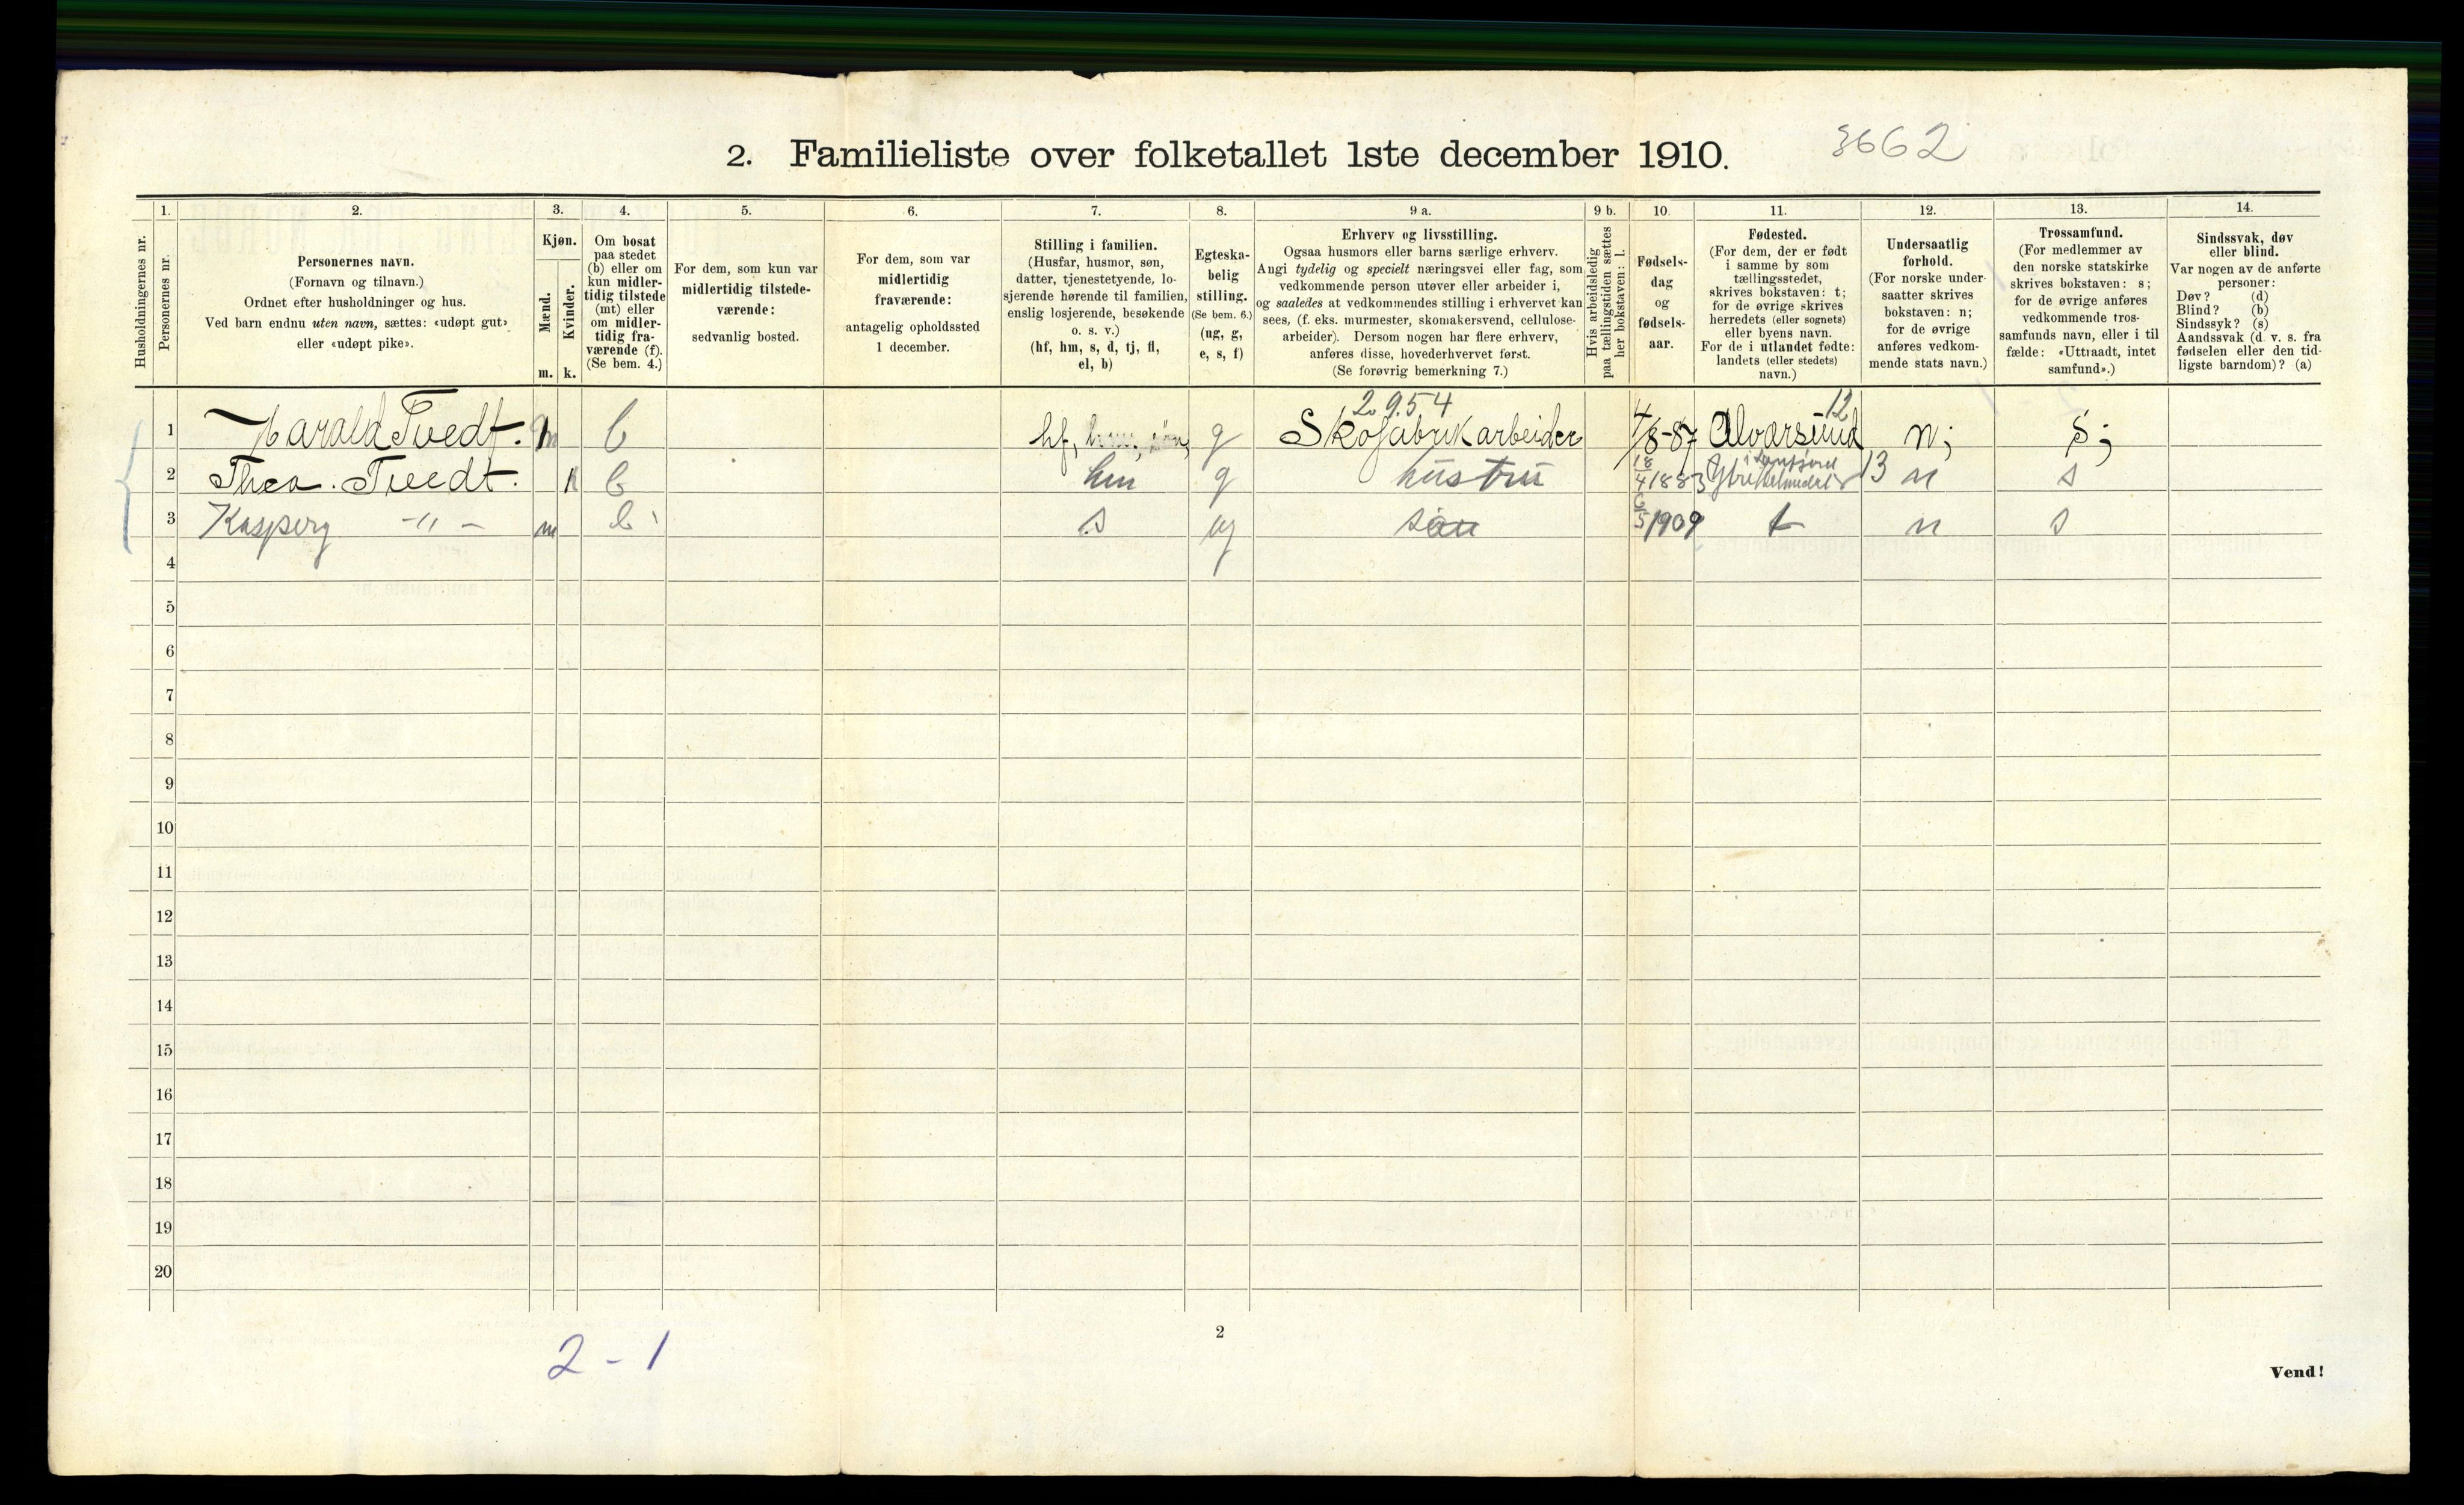 2. Familieliste over folketallet 1ste december 1910. 3662
Husholdningernes nr.
1.
Personernes nr.
2.
Personernes navn.
(Fornavn og tilnavn.)
Ordnet efter husholdninger og hus.
Ved barn endnu uten navn, sættes: «udøpt gut»
eller «udøpt pike».
3.
Kjøn.
Mænd.
Kvinder.
m. k.
4.
Om bosat
paa stedet
(b) eller om
kun midler-
tidig tilstede
(mt) eller
om midler-
tidig fra-
værende (f).
(Se bem. 4.)
5.
For dem, som kun var
midlertidig tilstede-
værende:
sedvanlig bosted.
6.
For dem, som var
midlertidig
fraværende:
antagelig opholdssted
1 december.
7.
Stilling i familien.
(Husfar, husmor, søn,
datter, tjenestetyende, lo-
sjerende hørende til familien,
enslig losjerende, besøkende
o. s. v.)
(hf, hm, s, d, tj, fl,
el, b)
8.
Egteska-
belig
stilling.
(Se bem. 6.)
(ug, g,
e, s, f)
9 a.
Erhverv og livsstilling.
Ogsaa husmors eller barns særlige erhverv.
Angi tydelig og specielt næringsvei eller fag, som
vedkommende person utøver eller arbeider i,
og saaledes at vedkommendes stilling i erhvervet kan
sees, (f. eks. murmester, skomakersvend, cellulose-
arbeider). Dersom nogen har flere erhverv,
anføres disse, hovederhvervet først.
(Se forøvrig bemerkning 7.)
9 b.
Hvis arbeidsledig
paa tællingstiden sættes
her bokstaven: l.
10.
Fødsels-
dag
og
fødsels-
aar.
11.
Fødested.
(For dem, der er født
i samme by som
tællingsstedet,
skrives bokstaven: t;
for de øvrige skrives
herredets (eller sognets)
eller byens navn.
For de i utlandet fødte:
landets (eller stedets)
navn.)
12.
Undersaatlig
forhold.
(For norske under-
saatter skrives
bokstaven: n;
for de øvrige
anføres vedkom-
mende stats navn.)
13.
Trossamfund.
(For medlemmer av
den norske statskirke
skrives bokstaven: s;
for de øvrige anføres
vedkommende tros-
samfunds navn, eller i til
fælde: «Uttraadt, intet
samfund».)
14.
Sindssvak, døv
eller blind.
Var nogen av de anførte
personer:
Døv? (d)
Blind? (b)
Sindssyk? (s)
Aandssvak (d. v. s. fra
fødselen eller den tid-
ligste barndom)? (a)
2954 12
1 Harald Tvedt. m b hf, g Skofabrikarbeider 4/8-87 Alversund n; s;
2 Thea. Tvedt. k b hm g hustru 18/4 1883 13 n s
3 Kasperg -"- m b s ug søn 6/5 1909 t n s
4
5
6
7
8
9
10
11
12
13
14
15
16
17
18
19
20
2-1
2
Vend!